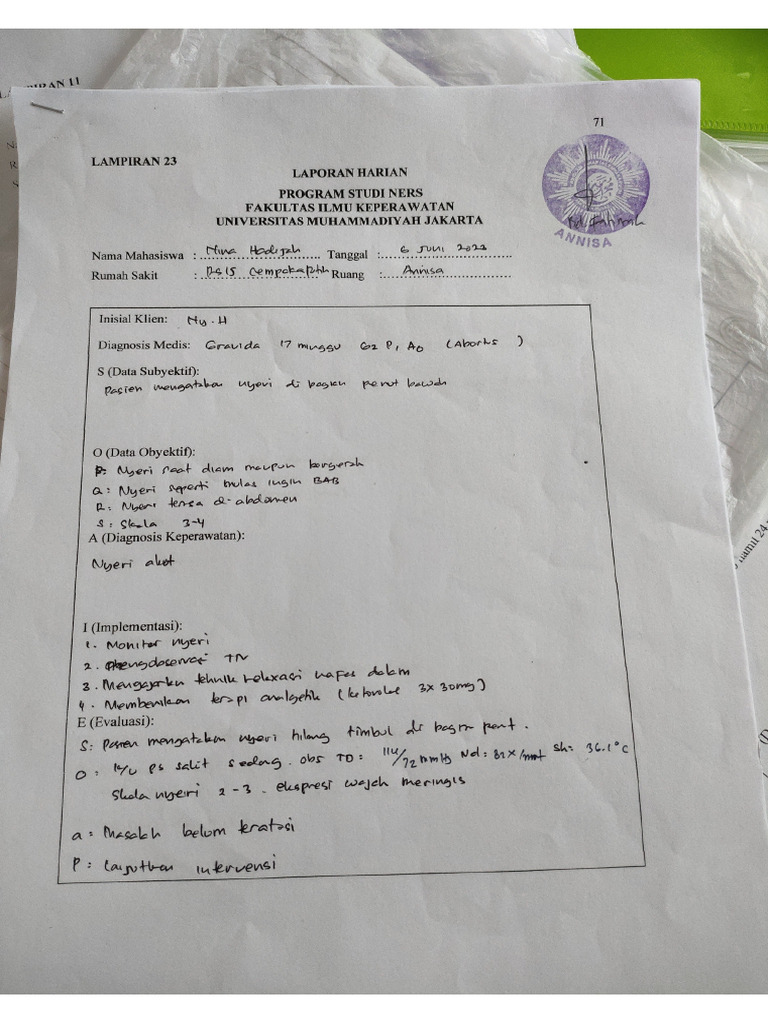 LAMPIRAN 11
71
LAMPIRAN 23
LAPORAN HARIAN
PROGRAM STUDI NERS
FAKULTAS ILMU KEPERAWATAN
UNIVERSITAS MUHAMMADIYAH JAKARTA
ANNISA
Nama Mahasiswa : Nina Hodijah Tanggal : 6 Juni 2023
Rumah Sakit : RSIS Cempaka Ruang : Annisa
Inisial Klien: Ny. H
Diagnosis Medis: Gravida 17 minggu G2 P1 A0 (Abortus)
S (Data Subyektif):
Pasien mengatakan nyeri di bagian perut bawah
O (Data Obyektif):
P: Nyeri saat diam maupun bergerak
Q: Nyeri seperti mulas ingin BAB
R: Nyeri terasa di abdomen
S: Skala 3-4
A (Diagnosis Keperawatan):
Nyeri akut
I (Implementasi):
1. Monitor nyeri
2. Mengobservasi TTV
3. Mengajarkan tehnik relaxasi nafas dalam
4. Memberikan terapi analgetik (ketorolac 3x30mg)
E (Evaluasi):
S: Pasien mengatakan nyeri hilang timbul di bagian perut.
O: K/U ps sakit sedang. obs TD: 114/72 mmHg Nd: 82x/mnt Sh: 36.1°C
Skala nyeri 2-3. ekspresi wajah meringis
a: Masalah belum teratasi
P: Lanjutkan intervensi
hamil 24